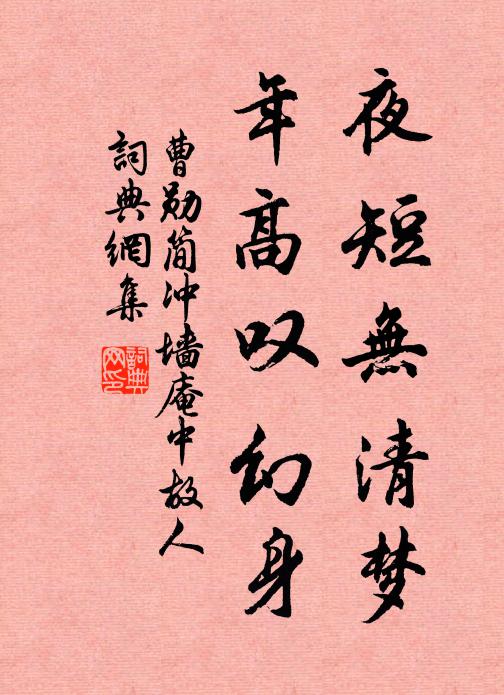 夜短無清梦
年高叹幻身
曹勋简冲墙庵中故人
詞典網集
詞典網印